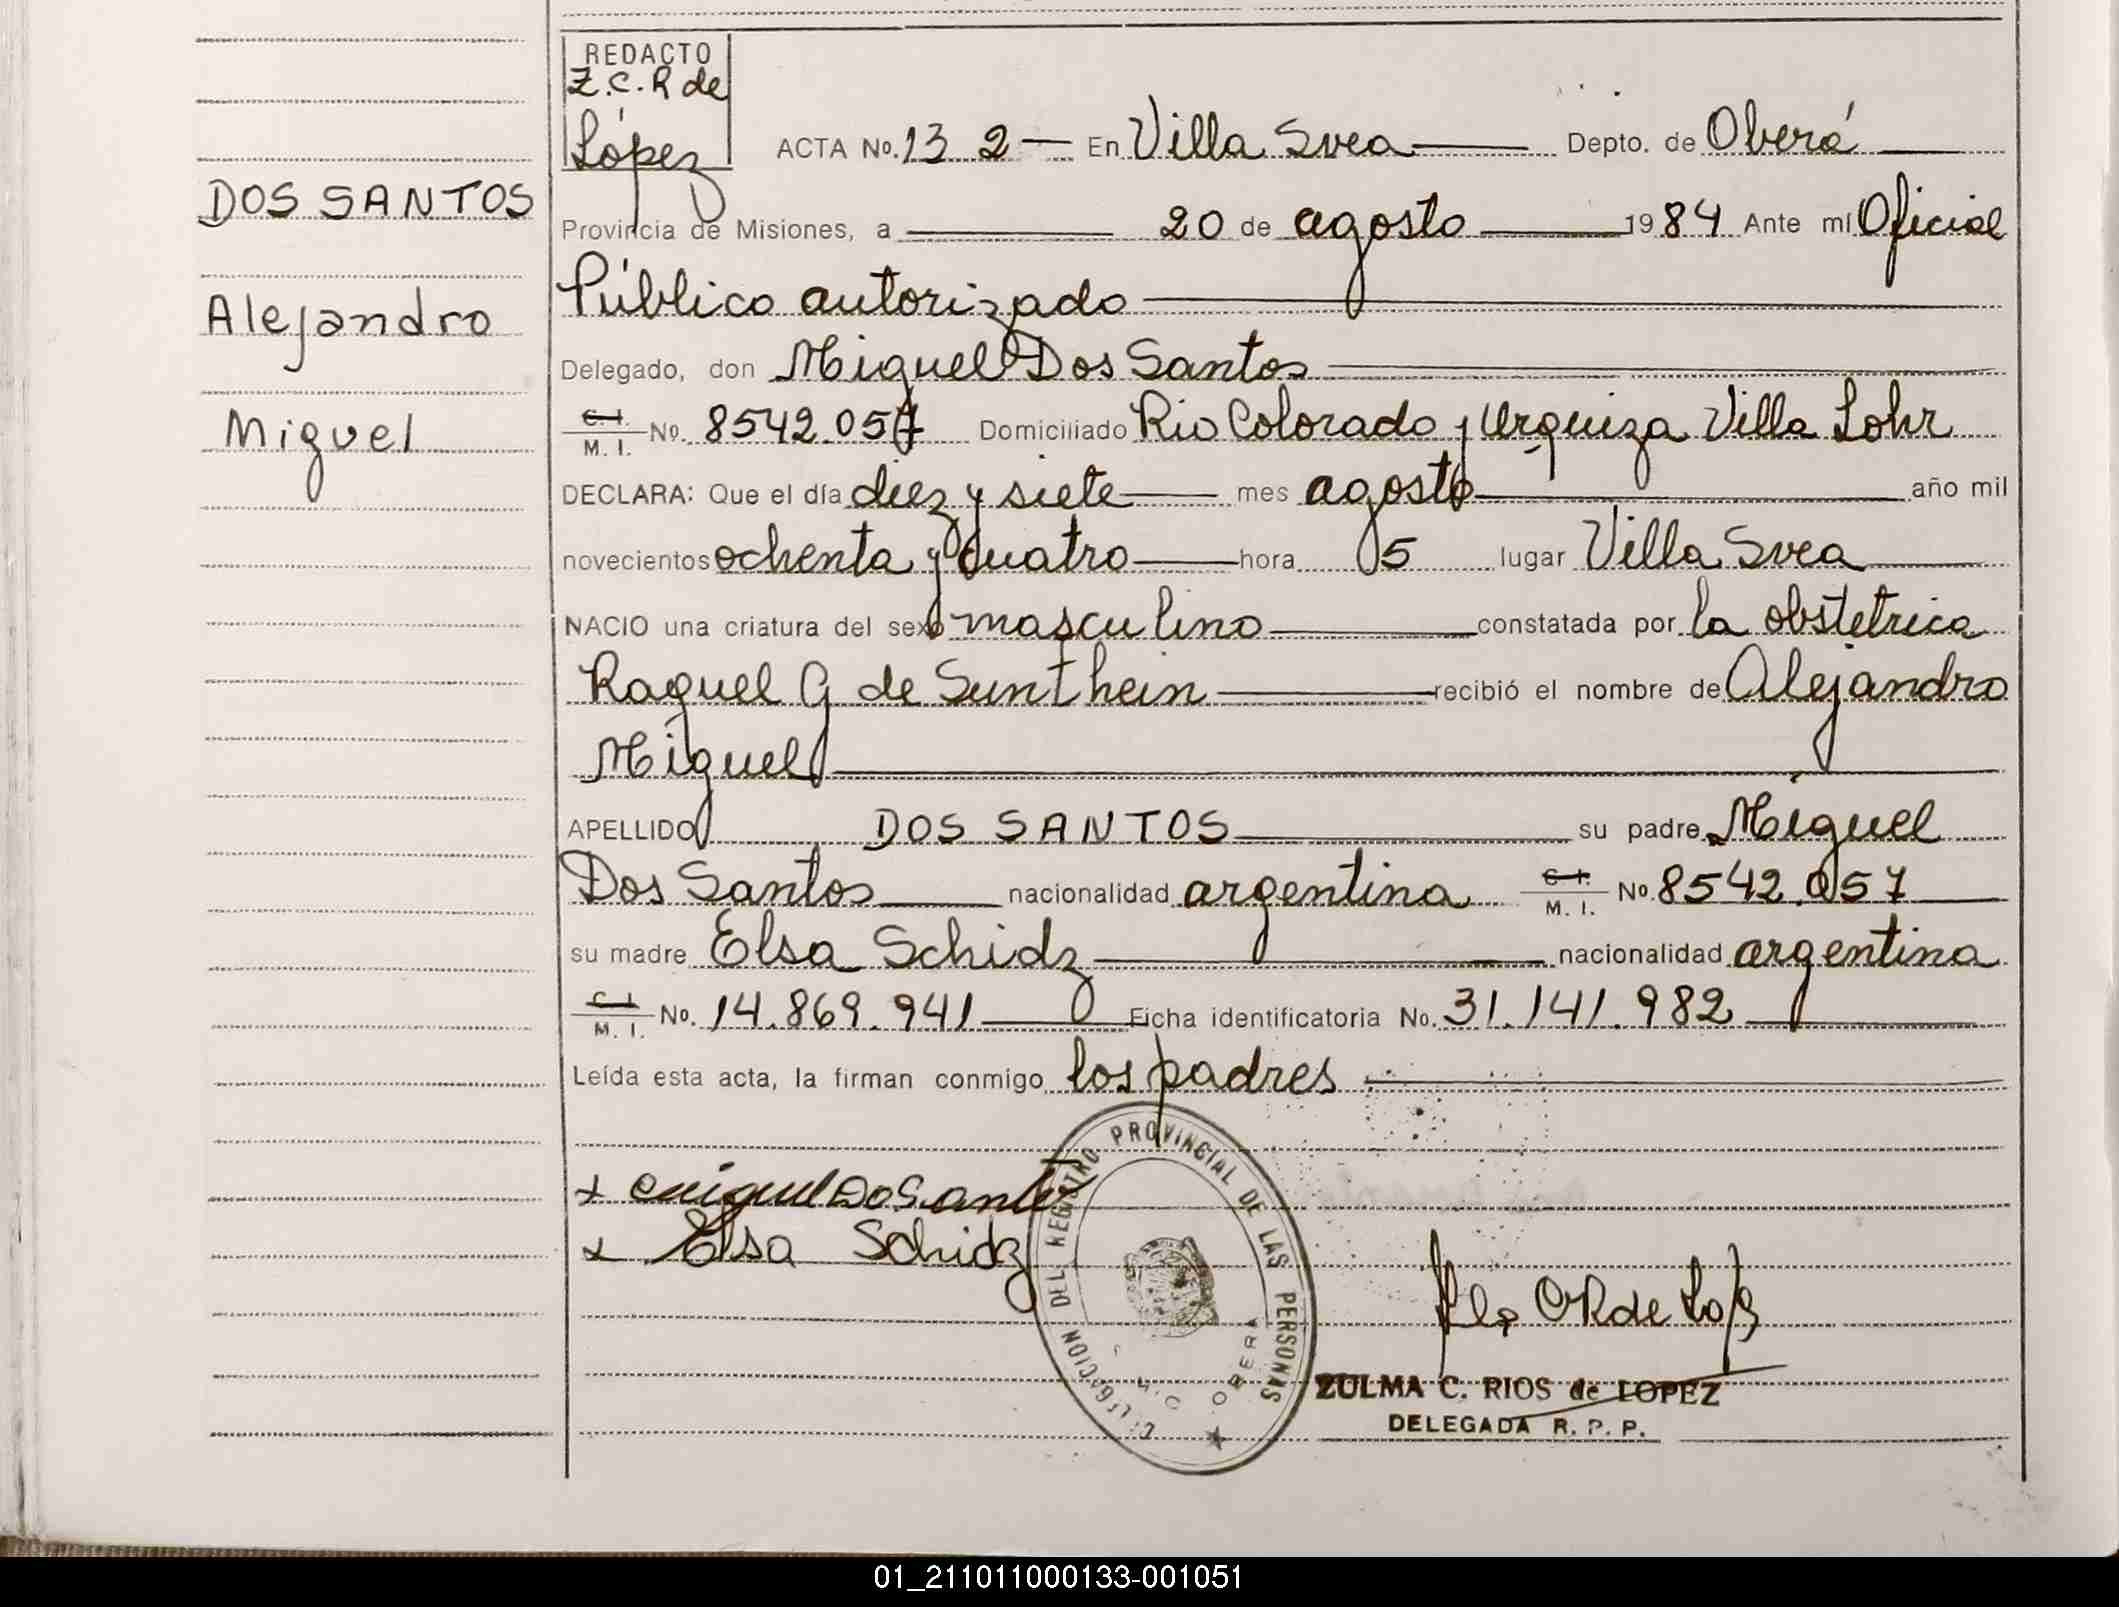 REDACTO
Z.C.R de
López
ACTA No. 132 — En Villa Svea — Depto. de Oberá
DOS SANTOS
Provincia de Misiones, a — 20 de agosto — 1984 Ante mí Oficial
Público autorizado
Alejandro
Delegado, don Miguel Dos Santos
Miguel
C.I.
M. I. No. 8542.057 Domiciliado Rio Colorado y Urquiza Villa Lohr
DECLARA: Que el día diez y siete — mes agosto — año mil
novecientos ochenta y cuatro — hora 5 lugar Villa Svea
NACIO una criatura del sexo masculino — constatada por la obstetrica
Raquel G de Sunthein — recibió el nombre de Alejandro
Miguel
APELLIDO DOS SANTOS — su padre Miguel
Dos Santos — nacionalidad argentina C.I. M. I. No. 8542.057
su madre Elsa Schidz — nacionalidad argentina
C.I.
M. I. No. 14.869.941 — Ficha identificatoria No. 31.141.982
Leída esta acta, la firman conmigo los padres
x Miguel Dos Santos
x Elsa Schidz
DELEGACION DEL REGISTRO PROVINCIAL DE LAS PERSONAS
OBERA
ZULMA C. RIOS de LOPEZ
DELEGADA R. P. P.
01_211011000133-001051